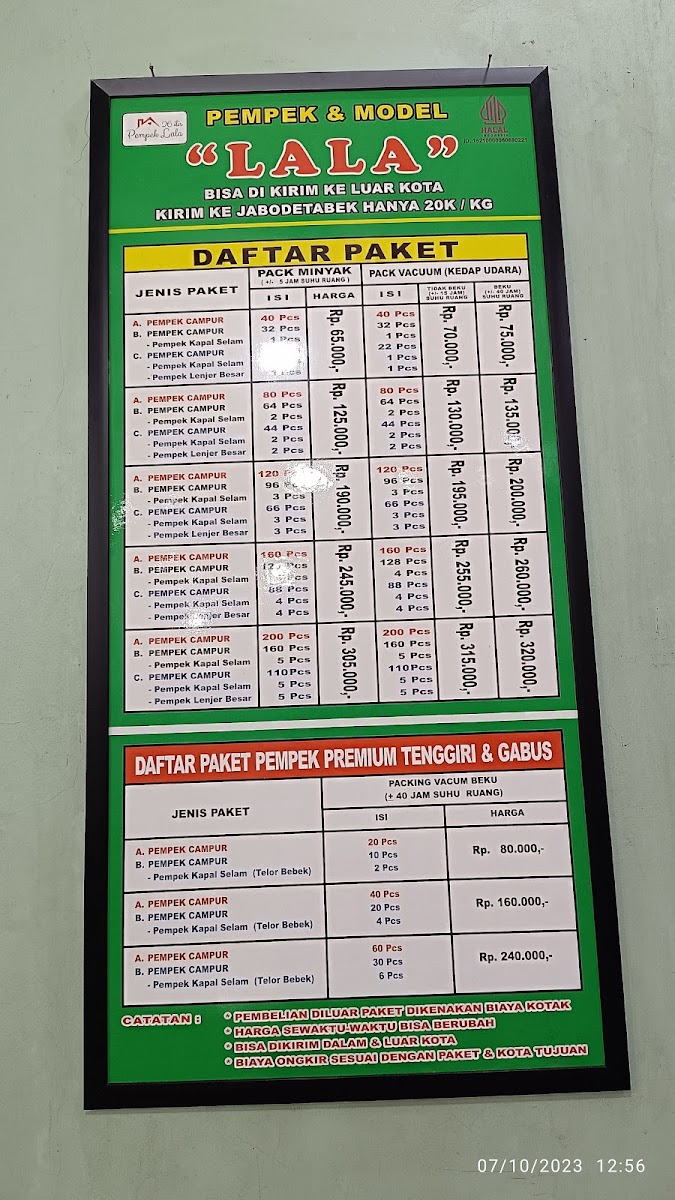 26 ilir
Pempek Lala
PEMPEK & MODEL
HALAL
INDONESIA
"LALA"
BISA DI KIRIM KE LUAR KOTA
KIRIM KE JABODETABEK HANYA 20K / KG
DAFTAR PAKET
JENIS PAKET
PACK MINYAK
( +/- 5 JAM SUHU RUANG )
ISI
HARGA
PACK VACUUM (KEDAP UDARA)
ISI
TIDAK BEKU
(+/- 15 JAM)
SUHU RUANG
BEKU
(+/- 40 JAM)
SUHU RUANG
A. PEMPEK CAMPUR 40 Pcs 40 Pcs
B. PEMPEK CAMPUR 32 Pcs 32 Pcs
- Pempek Kapal Selam 1 Pcs 1 Pcs
C. PEMPEK CAMPUR 22 Pcs
- Pempek Kapal Selam 1 Pcs
- Pempek Lenjer Besar 1 Pcs
Rp. 65.000,- Rp. 70.000,- Rp. 75.000,-
A. PEMPEK CAMPUR 80 Pcs 80 Pcs
B. PEMPEK CAMPUR 64 Pcs 64 Pcs
- Pempek Kapal Selam 2 Pcs 2 Pcs
C. PEMPEK CAMPUR 44 Pcs 44 Pcs
- Pempek Kapal Selam 2 Pcs 2 Pcs
- Pempek Lenjer Besar 2 Pcs 2 Pcs
Rp. 125.000,- Rp. 130.000,- Rp. 135.000,-
A. PEMPEK CAMPUR 120 Pcs 120 Pcs
B. PEMPEK CAMPUR 96 Pcs 96 Pcs
- Pempek Kapal Selam 3 Pcs 3 Pcs
C. PEMPEK CAMPUR 66 Pcs 66 Pcs
- Pempek Kapal Selam 3 Pcs 3 Pcs
- Pempek Lenjer Besar 3 Pcs 3 Pcs
Rp. 190.000,- Rp. 195.000,- Rp. 200.000,-
A. PEMPEK CAMPUR 160 Pcs 160 Pcs
B. PEMPEK CAMPUR 128 Pcs
- Pempek Kapal Selam 4 Pcs
C. PEMPEK CAMPUR 88 Pcs 88 Pcs
- Pempek Kapal Selam 4 Pcs 4 Pcs
- Pempek Lenjer Besar 4 Pcs 4 Pcs
Rp. 245.000,- Rp. 255.000,- Rp. 260.000,-
A. PEMPEK CAMPUR 200 Pcs 200 Pcs
B. PEMPEK CAMPUR 160 Pcs 160 Pcs
- Pempek Kapal Selam 5 Pcs 5 Pcs
C. PEMPEK CAMPUR 110Pcs 110Pcs
- Pempek Kapal Selam 5 Pcs 5 Pcs
- Pempek Lenjer Besar 5 Pcs 5 Pcs
Rp. 305.000,- Rp. 315.000,- Rp. 320.000,-
DAFTAR PAKET PEMPEK PREMIUM TENGGIRI & GABUS
JENIS PAKET
PACKING VACUM BEKU
(± 40 JAM SUHU RUANG)
ISI
HARGA
A. PEMPEK CAMPUR 20 Pcs
B. PEMPEK CAMPUR 10 Pcs
- Pempek Kapal Selam (Telor Bebek) 2 Pcs
Rp. 80.000,-
A. PEMPEK CAMPUR 40 Pcs
B. PEMPEK CAMPUR 20 Pcs
- Pempek Kapal Selam (Telor Bebek) 4 Pcs
Rp. 160.000,-
A. PEMPEK CAMPUR 60 Pcs
B. PEMPEK CAMPUR 30 Pcs
- Pempek Kapal Selam (Telor Bebek) 6 Pcs
Rp. 240.000,-
CATATAN : * PEMBELIAN DILUAR PAKET DIKENAKAN BIAYA KOTAK
* HARGA SEWAKTU-WAKTU BISA BERUBAH
* BISA DIKIRIM DALAM & LUAR KOTA
* BIAYA ONGKIR SESUAI DENGAN PAKET & KOTA TUJUAN
07/10/2023 12:56